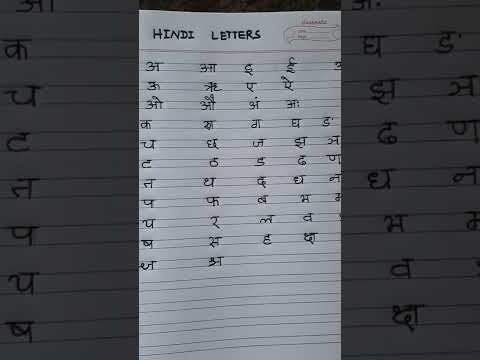 HINDI LETTERS
अ आ इ ई
ऊ ऋ ए ऐ
ओ औ अं अः
क ख ग घ ङ
च छ ज झ ञ
ट ठ ड ढ ण
त थ द ध न
प फ ब भ म
य र ल व
ष स ह क्ष
ज्ञ श्र